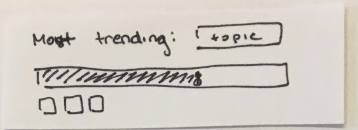 Most trending: topic